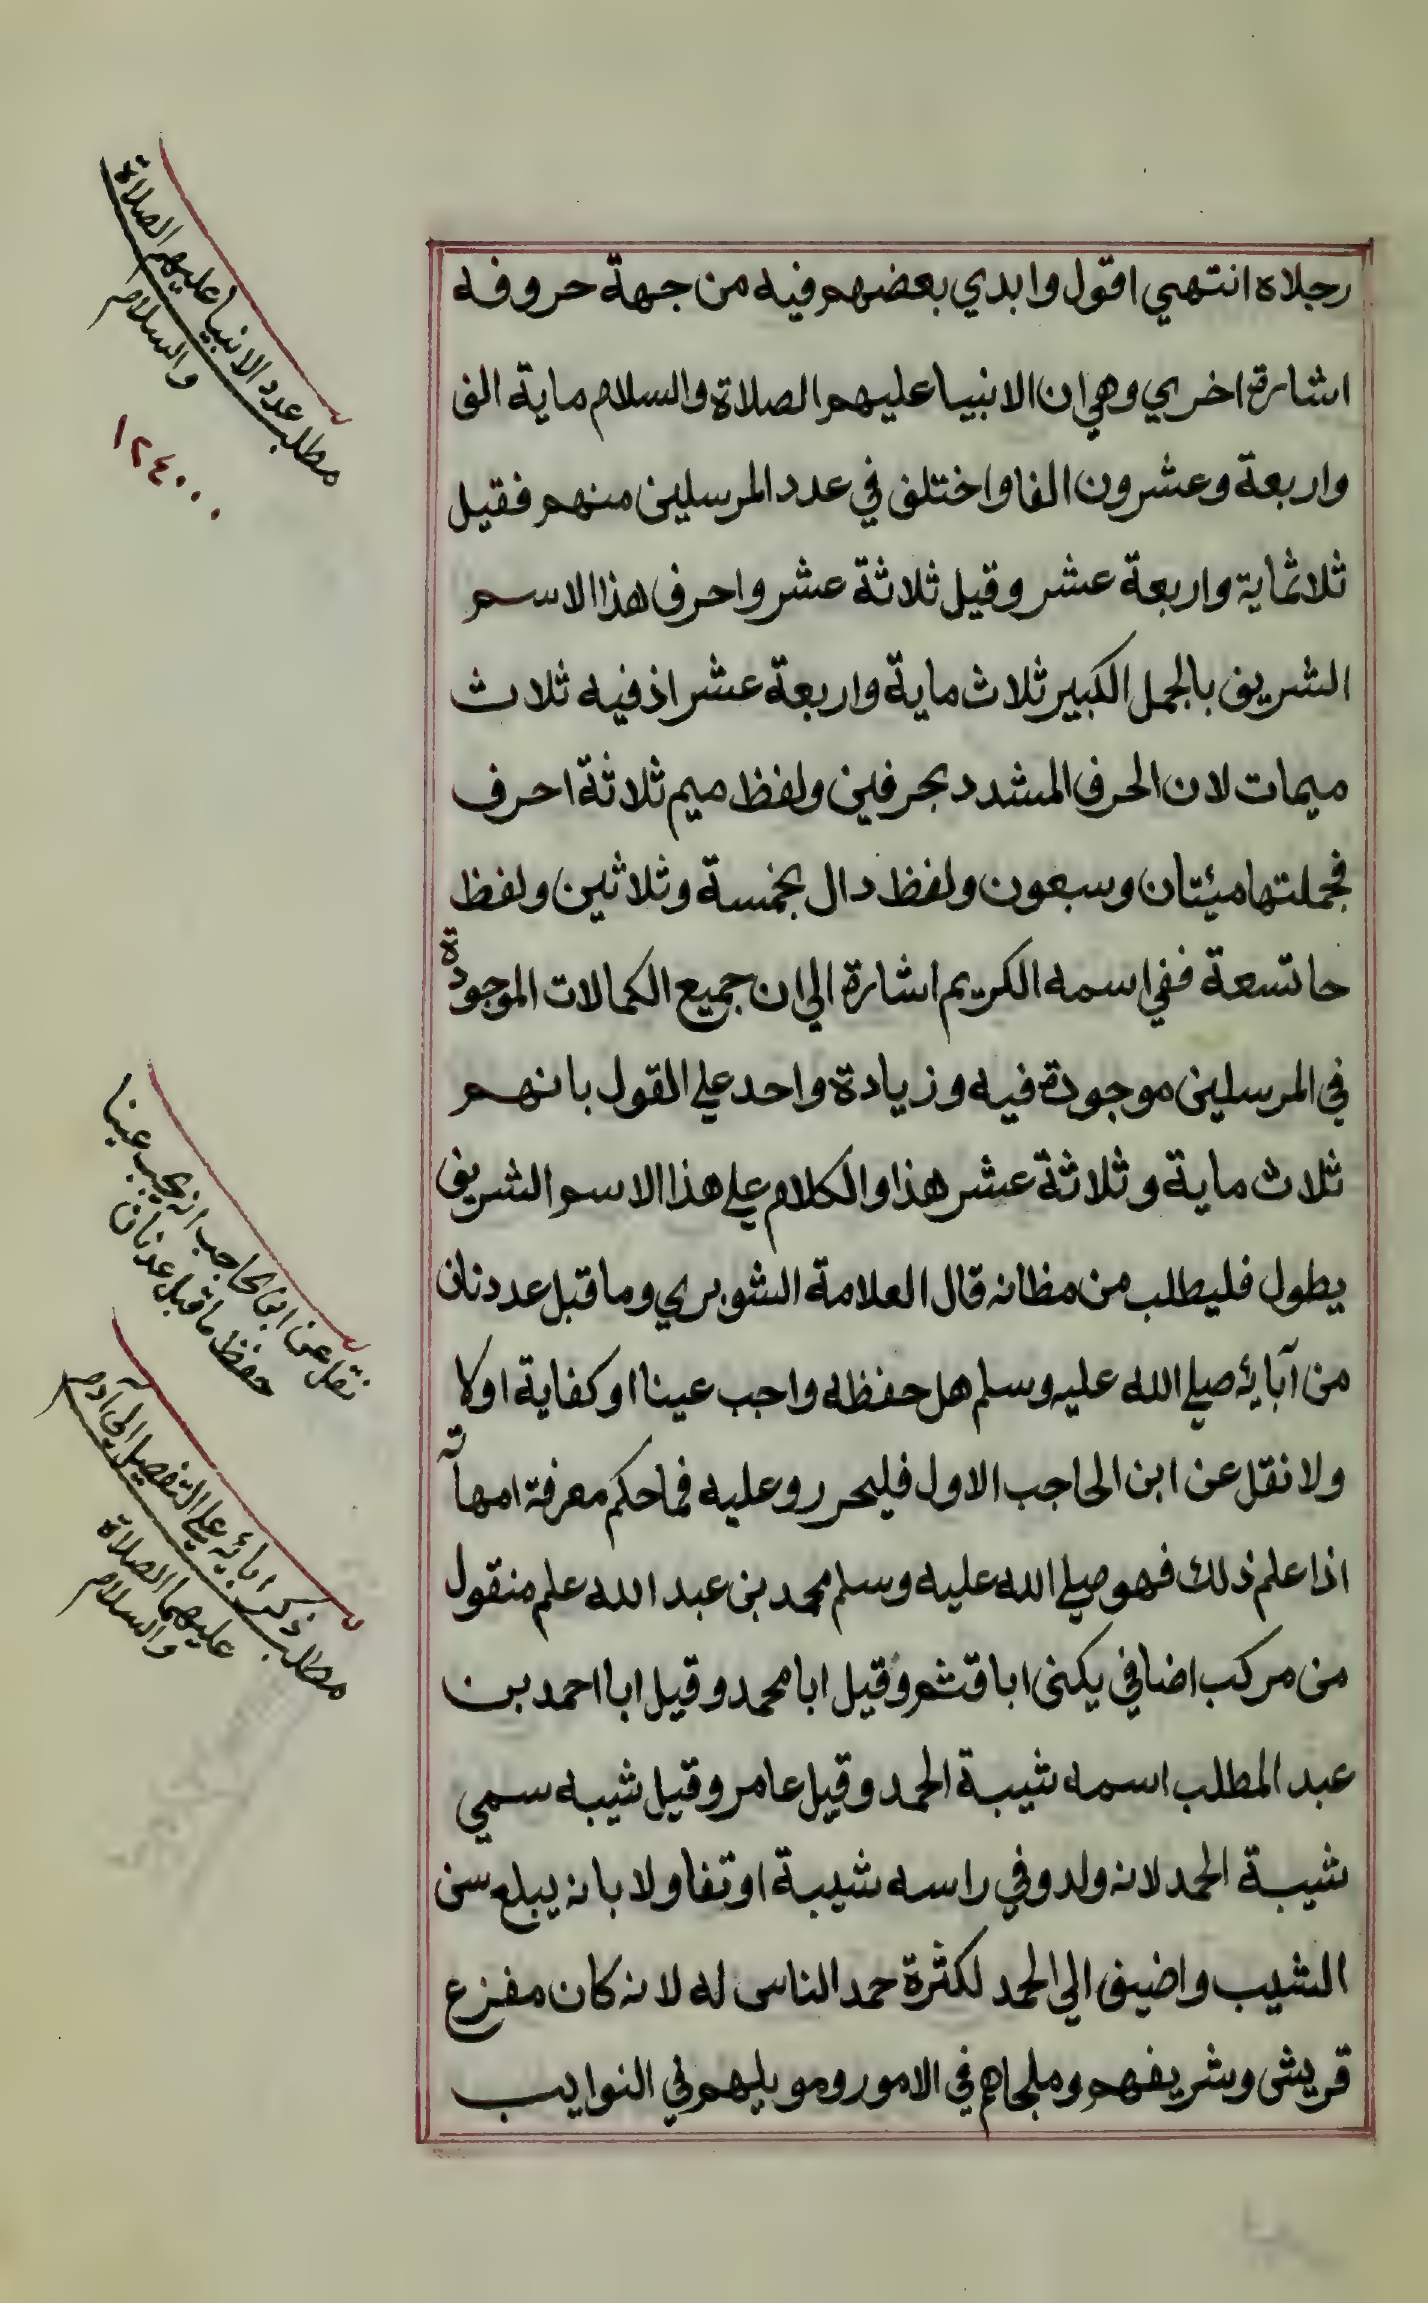 رجلاه انتهي اقول وابدي بعضهم فيه من جهة حروفه
اشارة اخري وهي ان الانبيا عليهم الصلاة والسلام ماية الف
واربعة وعشرون الفا واختلف في عدد المرسلين منهم فقيل
ثلاثماية واربعة عشر وقيل ثلاثة عشر واحرف هذا الاسم
الشريف بالجمل الكبير ثلاث ماية واربعة عشر اذ فيه ثلاث
ميمات لان الحرف المشدد بحرفين ولفظ ميم ثلاثة احرف
فجملتها ميئتان وسبعون ولفظ دال بخمسة وثلاثين ولفظ
حا تسعة ففي اسمه الكريم اشارة الي ان جميع الكمالات الموجودة
في المرسلين موجودة فيه وزيادة واحد علي القول بانهم
ثلاث ماية وثلاثة عشر هذا والكلام علي هذا الاسم الشريف
يطول فليطلب من مظانه قال العلامة الشوبري وما قبل عددنان
من آبايه صلي الله عليه وسلم هل حفظه واجب عينا او كفاية اولا
ولا نقل عن ابن الحاجب الاول فليحرر وعليه فما حكم معرفة امهاته
اذا علم ذلك فهو صلي الله عليه وسلم محمد بن عبد الله علم منقول
من مركب اضافي يكنى ابا قثم وقيل ابا محمد وقيل ابا احمد بن
عبد المطلب اسمه شيبة الحمد وقيل عامر وقيل شيبه سمي
شيبة الحمد لانه ولد وفي راسه شيبة او تفاولا بانه يبلغ سن
الشيب واضيف الي الحمد لكثرة حمد الناس له لانه كان مفزع
قريش وشريفهم وملجاهم في الامور ومويلهم في النوايب
مطلب عدد الانبيا عليهم الصلاة
والسلام
١٢٤٠٠٠
نقل عن ابن الحاجب انه يجب عينا
حفظ ما قبل عدنان
مطلب ذكر ابائه علي التفصيل الي آدم
عليهما الصلاة
والسلام